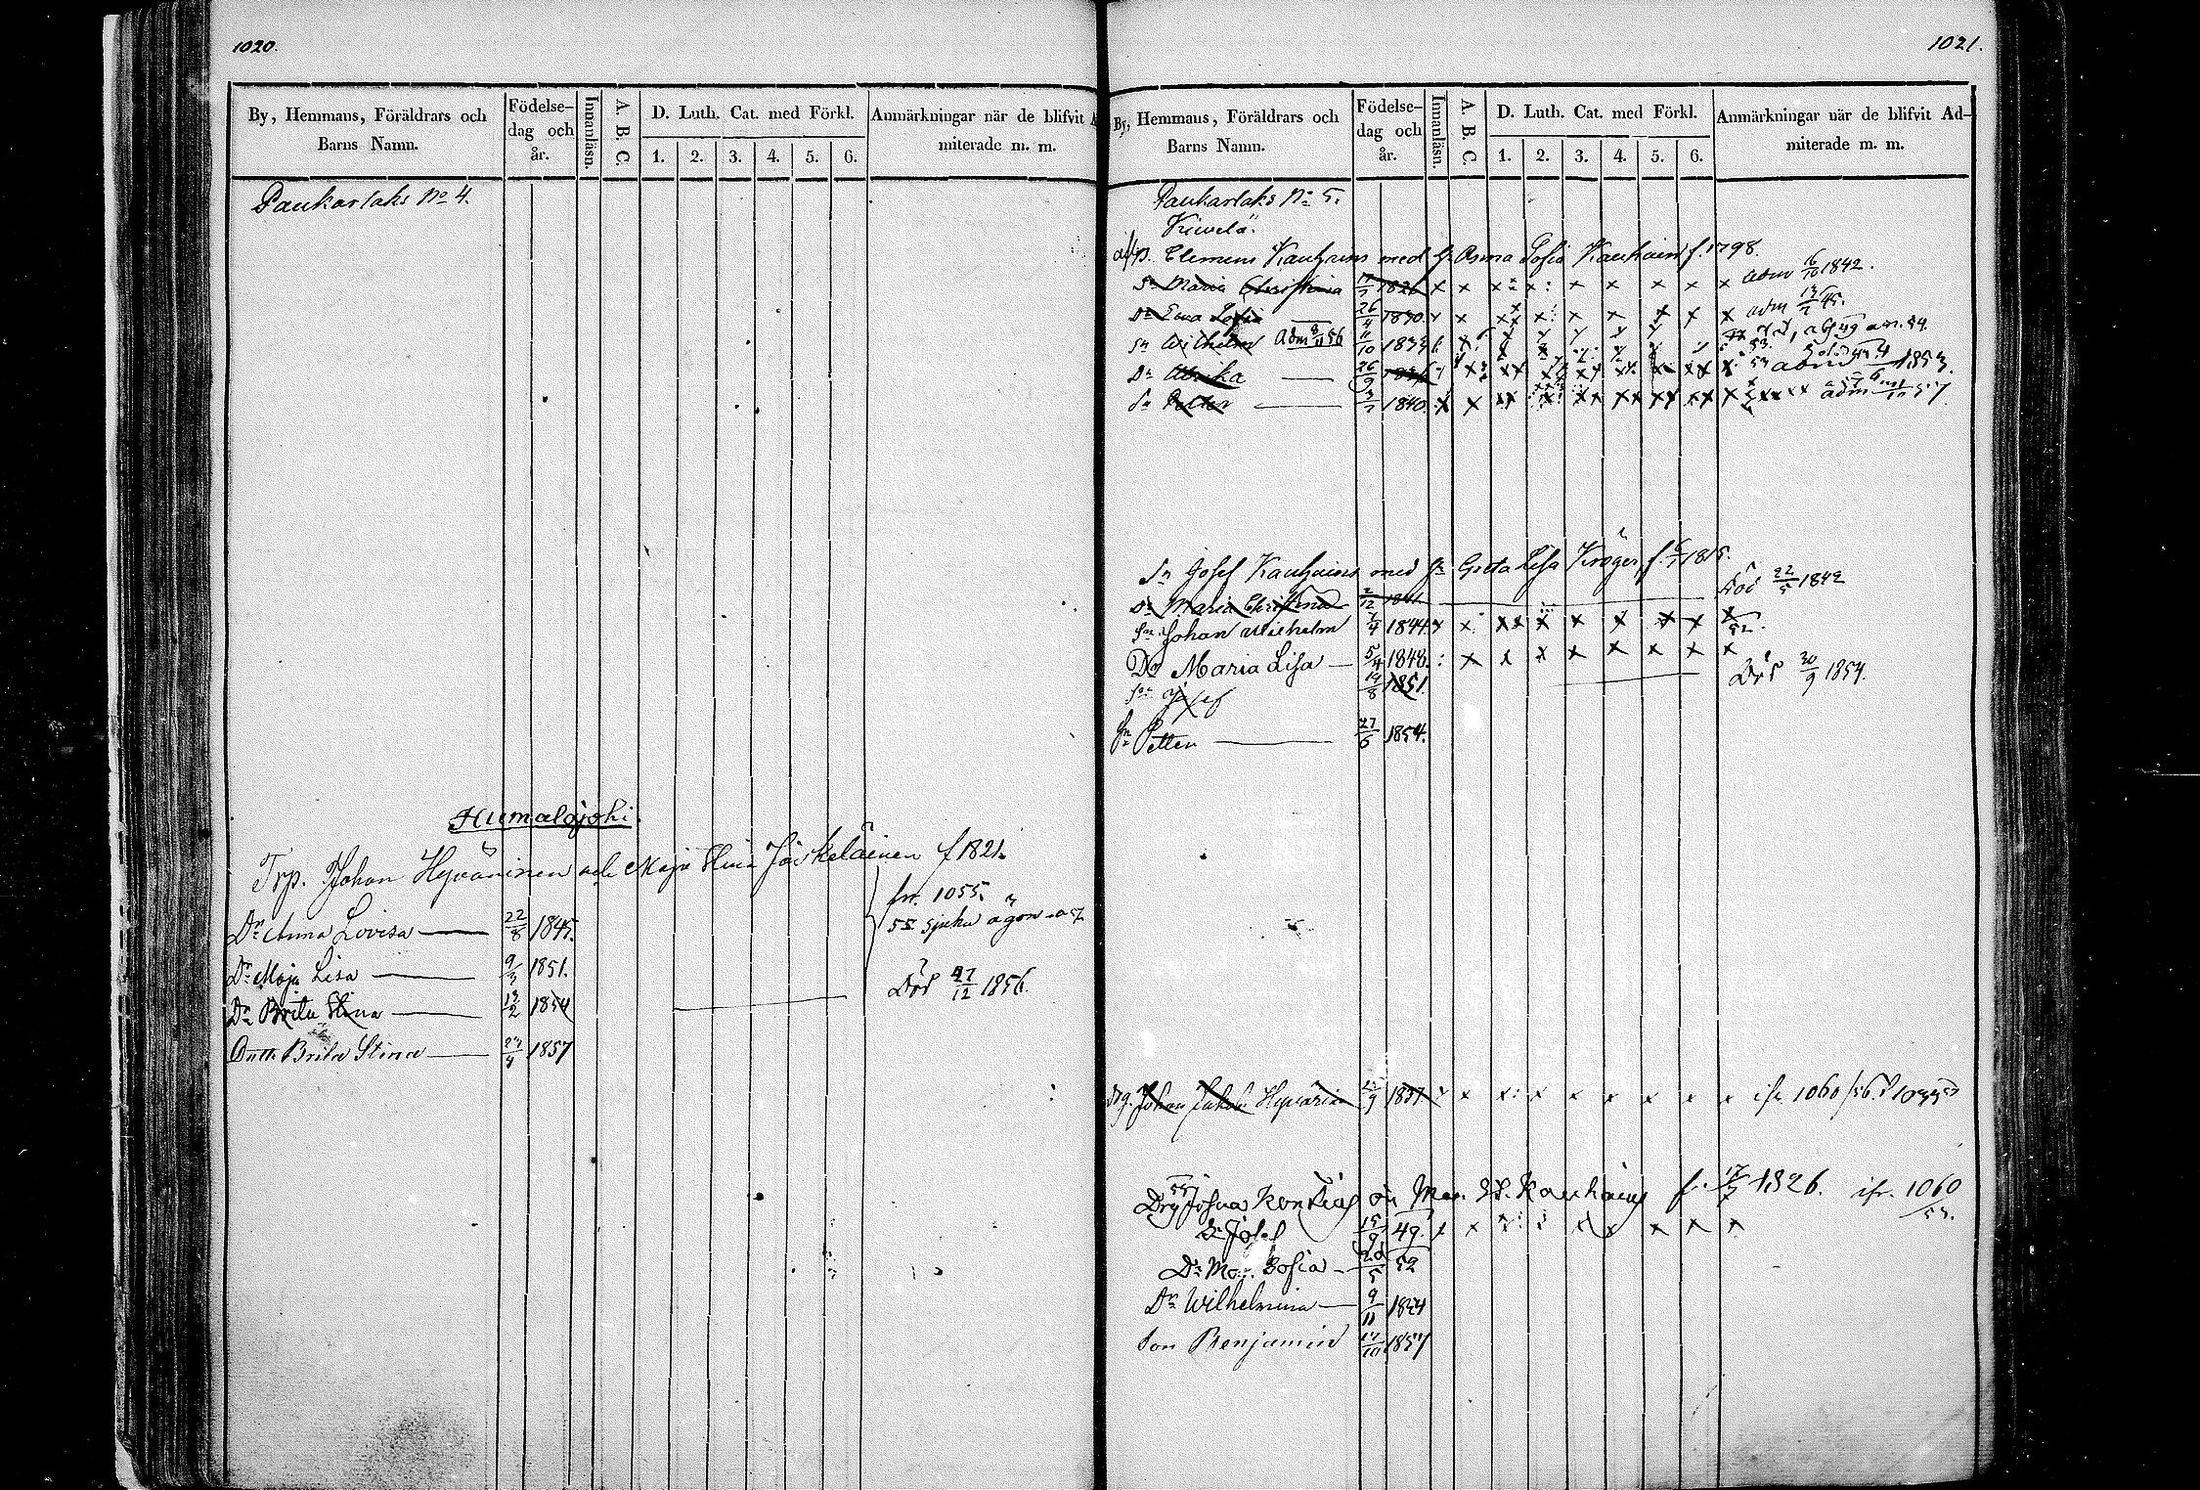 1020.
By, Hemmans, Föräldrars och Barns Namn.
Födelse-dag och år.
Innanläsn.
A. B. C.
D. Luth. Cat. med Förkl.
1. 2. 3. 4. 5. 6.
Anmärkningar när de blifvit
miterade m. m.
Paukarlaks No 4.
Humalajoki.
Trp. Johan Hyväninen och Maja Stina Jääskeläinen f 1821.
fr. 1055.
Dr Anna Lovisa 22/8 1845.
55 sjuka ögon
Dr Maja Lisa 9/3 1851.
Dr Brita Stina 13/2 1854 Död 27/12 1856
Brita Stina 1857
1021.
By, Hemmans, Föräldrars och Barns Namn.
Födelse-dag och år.
Innanläsn.
A. B. C.
D. Luth. Cat. med Förkl.
1. 2. 3. 4. 5. 6.
Anmärkningar när de blifvit Ad-
miterade m. m.
Paukarlaks No 5.
Kiuvelä.
Clemens Kauhains med h. Anna Sofia Kauhain f. 1798.
Maria Christina 1826 x x x x x x x x x adm 16/10 1842.
Dr Eva Sofia 26/4 1830 x x x x x x x x adm 45.
Sn Wilhelm adm 56 /10 1833
Dr Ulrika 26/9 adm 1853.
Sn Petter 1840 adm 57
Sn Josef Kauhains med h. Greta Lisa Kröger, f. 1815.
Dr Maria Christina 2/12 1841 Död 22/5 1842
Sn Johan Wilhelm /4 1844 x x x x x x x x 52.
Dr Maria Lisa 5/4 1848. x x x x x x x x
Sn Josef 19/8 1851. Död 30/9 1854.
Sn Petter 27/6 1854.
Drg. Johan Jakob Hyvärin 1837 x x x x x x x x ifr. 1060/56
55
Drg Josua Kontiain o Mar. St. Kauhains f. 17/7 1826. ifr. 1060
Sn Josef 15/9 49. x x x x x x x
Dr Mar. Sofia 20/5 52
Dr Wilhelmina 9/11 1854
Son Benjamin 1857